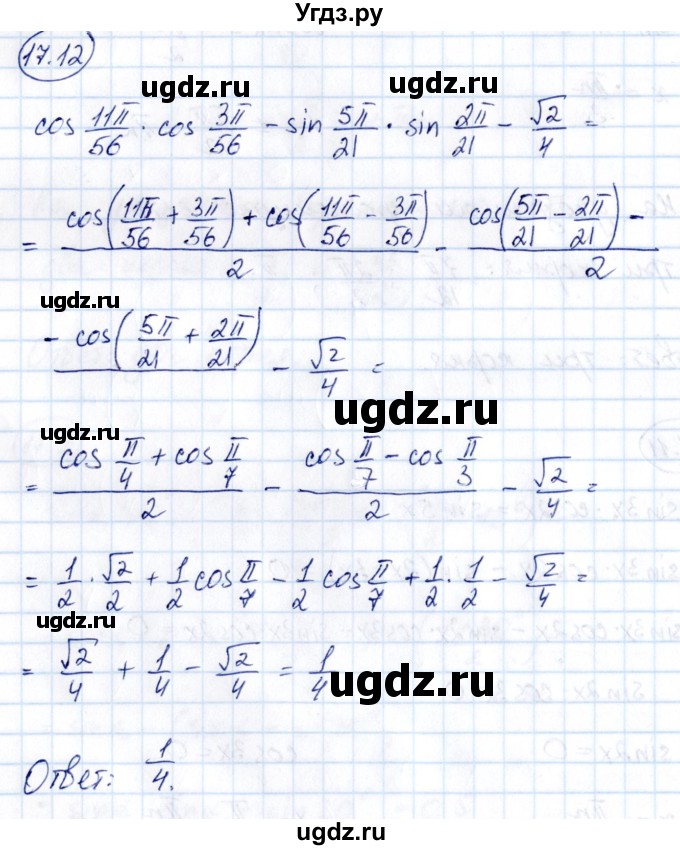 Угдз.ру
17.12
ugdz.ru ugdz.ru
cos 11π/56 · cos 3π/56 - sin 5π/21 · sin 2π/21 - √2/4 =
ugdz.ru ugdz.ru
= (cos(11π/56 + 3π/56) + cos(11π/56 - 3π/56))/2 - (cos(5π/21 - 2π/21) -
- cos(5π/21 + 2π/21))/2 - √2/4 =
ugdz.ru
ugdz.ru
ugdz.ru
= (cos π/4 + cos π/7)/2 - (cos π/7 - cos π/3)/2 - √2/4 =
= 1/2 · √2/2 + 1/2 cos π/7 - 1/2 cos π/7 + 1/2 · 1/2 - √2/4 =
ugdz.ru
= √2/4 + 1/4 - √2/4 = 1/4
ugdz.ru
Ответ: 1/4.
ugdz.ru